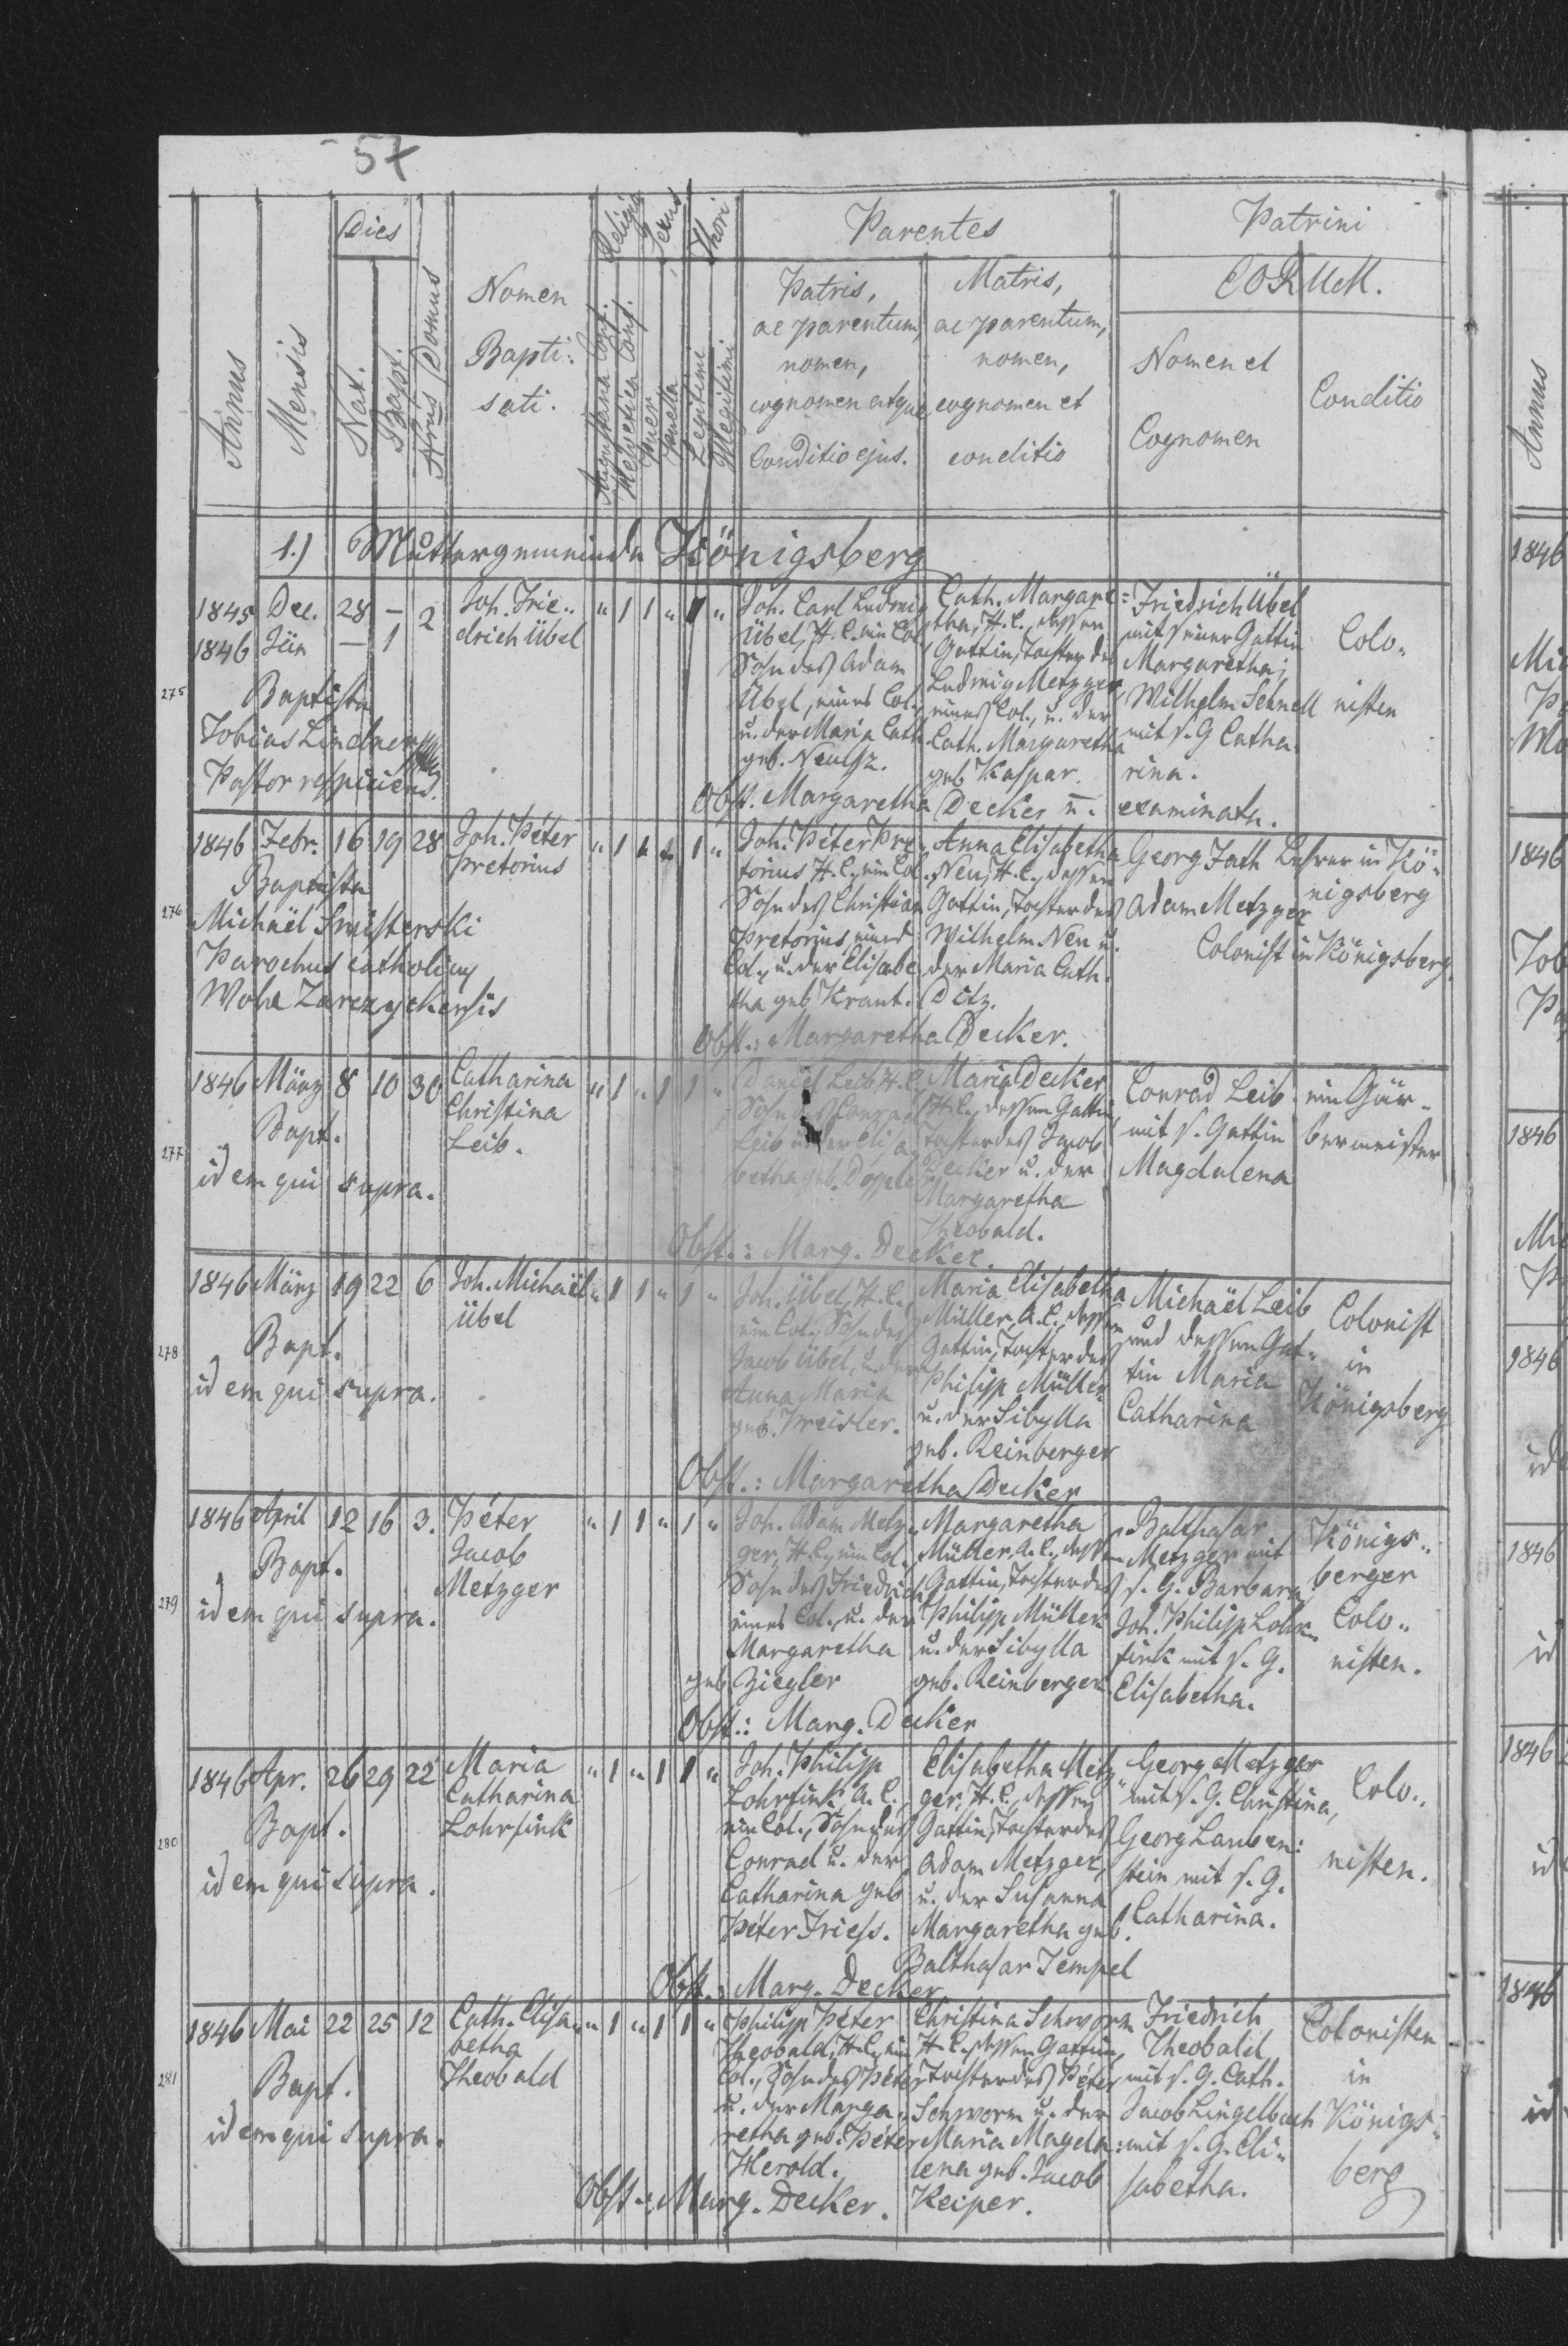 57
Dies
Religio
Sexus
Thori
Parentes
Patrini
Annus
Mensis
Nat.
Bapt.
Nrus Domus
Nomen
Bapti:
sati.
Augustana Conf.
Helvetica Conf.
Puer
Puella
Legitimi
Illegitimi
Patris,
ac parentum,
nomen,
cognomen atque
Conditio ejus.
Matris,
ac parentum,
nomen,
cognomen et
conditio
EORUM.
Nomen et
Cognomen
Conditio
1.) Muttergemeinde Königsberg
275
1845 Dec. 28 – 2
1846 Jän – 1
Baptista
Tobias Lindner
Pastor respiciens.
Joh. Frie..
drich Übel
" 1 1 " 1 "
Joh. Carl Ludwig
Übel, H.C. ein Col.
Sohn des Adam
Übel, eines Col.
u. der Maria Cath.
geb.
Cath. Margare=
tha, H.C., dessen
Gattin, Tochter des
Ludwig Metzger
eines Col., u. der
Cath. Margaretha
geb Kaspar.
Friedrich Übel
mit seiner Gattin
Margaretha;
Wilhelm Schnell
mit s. G Catha-
rina.
Colo-
nisten
Obst. Margaretha Decker u. examinata.
276
1846 Febr. 16 19 28
Baptista
Michaël Smisterski
Parochus catholicus
Wola Zarczyckensis
Joh. Péter
Pretorius
" 1 1 " 1 "
Joh. Péter Pre-
torius H.C., ein Col.
Sohn des Christian
Pretorius, eines
Col., u. der Elisabe
tha geb Kraut.
Anna Elisabetha
Neu, H.C., dessen
Gattin, Tochter des
Wilhelm Neu u.
der Maria Cath.
Ditz.
Georg Fath Lehrer in Kö-
nigsberg
Adam Metzger
Colonist in Königsberg.
Obst.: Margaretha Decker.
277
1846 März 8 10 30
Bapt.
idem qui supra.
Catharina
Christina
Leib.
" 1 " 1 1 "
Daniel Leib H.C.
Sohn des Conrad
Leib u. der Elisa
betha geb. Doppler
Maria Decker
H.C., dessen Gattin,
Tochter des Jacob
Decker u. der
Margaretha
Theobald.
Conrad Leib
mit s. Gattin
Magdalena
ein Gär-
bermeister
Obst.: Marg. Decker.
278
1846 März 19 22 6
Bapt.
idem qui supra.
Joh. Michaël
Übel
" 1 1 " 1 "
Joh. Übel, H.C.,
ein Col., Sohn des
Jacob Übel, u. der
Anna Maria
geb. Kreisler.
Maria Elisabetha
Müller, A.C., dessen
Gattin, Tochter des
Philipp Müller
u. der Sibylla
geb. Reinberger
Michaël Leib
und dessen Gat-
tin Maria
Catharina
Colonist
in
Königsberg
Obst.: Margaretha Decker
279
1846 April 12 16 3.
Bapt.
idem qui supra.
Péter
Jacob
Metzger
" 1 1 " 1 "
Joh. Adam Metz-
ger, H.C., ein Col.,
Sohn des Friedrich
eines Col. u. der
Margaretha
geb Ziegler
Margaretha
Müller, A.C., dessen
Gattin, Tochter des
Philipp Müller
u. der Sibylla
geb. Reinberger
Balthasar
Metzger mit
s. G. Barbara
Joh. Philipp Lohr-
fink mit s. G.
Elisabetha.
Königs-
berger
Colo-
nisten.
Obst.: Marg. Decker
280
1846 Apr. 26 29 22
Bapt.
idem qui supra.
Maria
Catharina
Lohrfink
" 1 " 1 1 "
Joh. Philipp
Lohrfink, A.C.,
ein Col., Sohn des
Conrad u. der
Catharina geb
Péter Friess.
Elisabetha Metz-
ger, H.C., dessen
Gattin, Tochter des
Adam Metzger,
u. der Susanna
Margaretha geb.
Balthasar Tempel
Georg Metzger
mit s. G. Christina,
Georg Lauben:
stein mit s. G.
Catharina.
Colo-
nisten.
Obst.: Marg. Decker
281
1846 Mai 22 25 12
Bapt.
idem qui supra.
Cath. Elisa-
betha
Theobald
" 1 " 1 1 "
Philipp Péter
Theobald, H.C., ein
Col., Sohn des Péter
u. der Marga-
retha geb. Péter
Herold.
Christina Schworm
H.C., dessen Gattin,
Tochter des Péter
Schworm u. der
Maria Magda:
lena geb. Jacob
Keiper.
Friedrich
Theobald
mit s. G. Cath.
Jacob Lingelbach
mit s. G. Eli-
sabetha.
Colonisten
in
Königs-
berg
Obst.: Marg. Decker.
Annus
1846
1846
1846
1846
1846
1846
1846